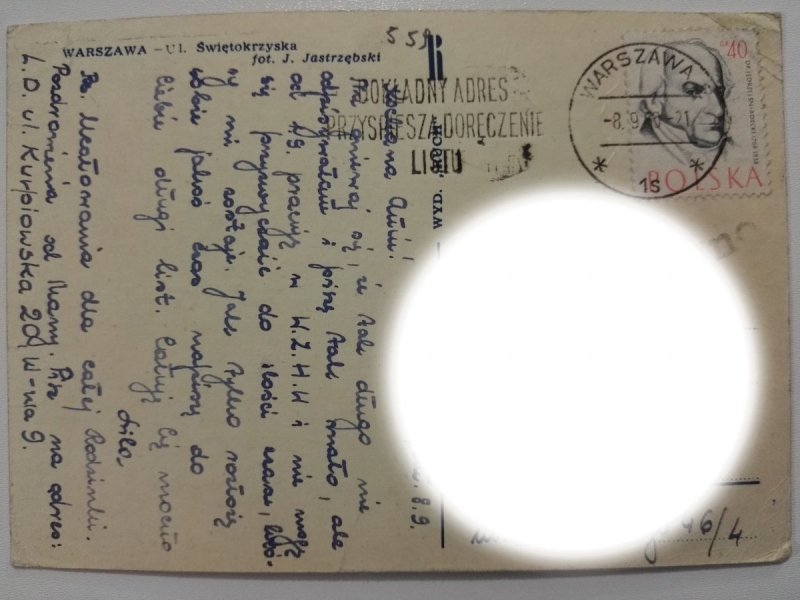 WARSZAWA - Ul. Świętokrzyska
fot. J. Jastrzębski
DOKŁADNY ADRES
PRZYSPIESZA DORĘCZENIE
LISTU
WARSZAWA
1s
40
POLSKA
WYD. „RUCH"
8.9.
Kochana
Nie gniewaj się, że tak długo nie
odpisywałam i piszę tak mało, ale
od 1.9. pracuję w W.Z.H.H i nie mogę
się przyzwyczaić do ilości czasu,
mi zostaje. Jak tylko rozłożę
sobie jakoś czas napiszę do
Ciebie długi list. Całuję Cię mocno
Lila
Ps. Ucałowania dla całej Rodzinki.
Pozdrowienia od Mamy. Pisz na adres:
L.D. ul. Kurpiowska 20 W-wa 9.
46/4